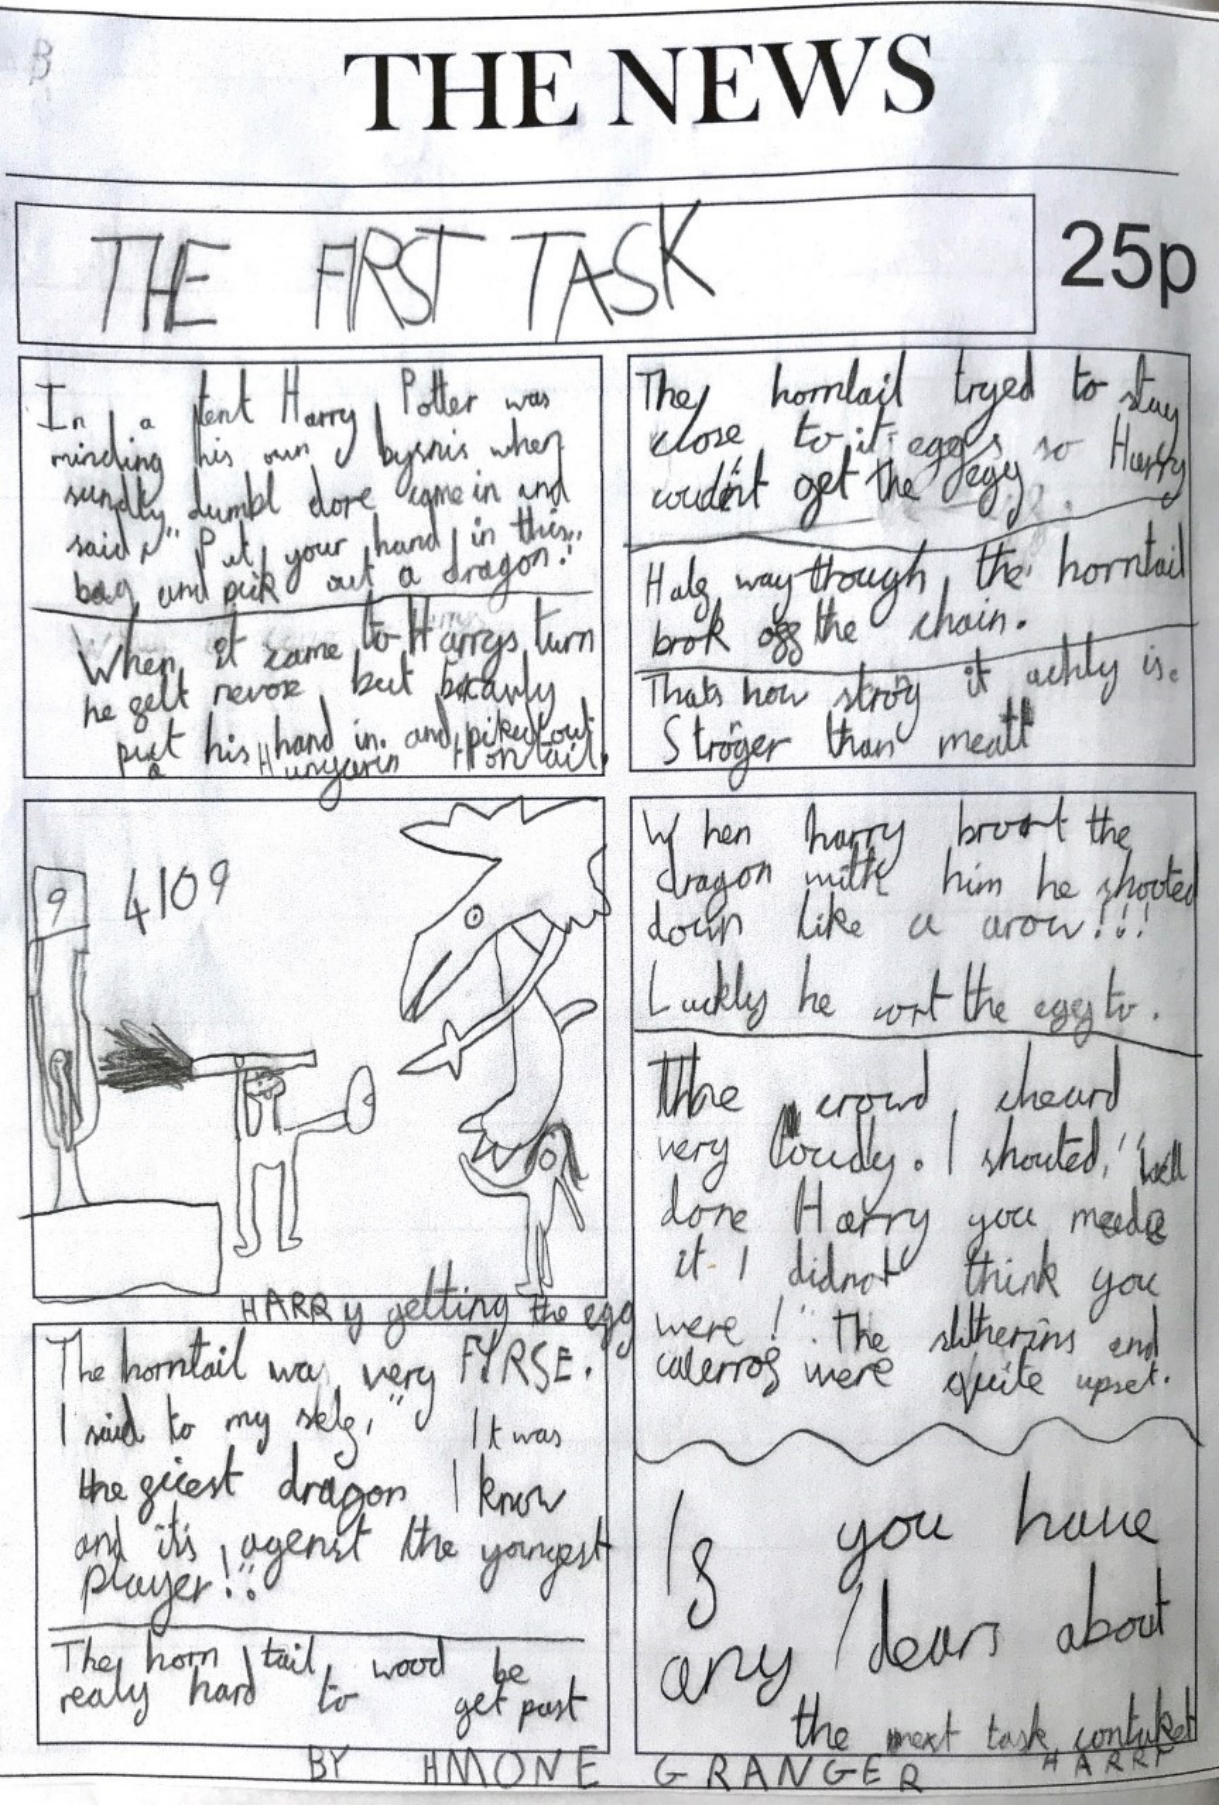 B
THE NEWS
THE FIRST TASK
25p
In a tent Harry Potter was
minding his own bysnis when
sundly dumbl dore came in and
said, " Put your hand in this
bag and pick out a dragon!"
When it came to Harrys turn
he felt nevor but bravly
put his hand in. and piked out
a Hungarin Hontail.
9 4109
HARRy getting the egg
The horntail wa very FYRSE.
I said to my self, " It was
the ficest dragon I know
and it's agenst the youngest
player!"
The horn tail wood be
realy hard to get past
The horntail tryed to stay
close to it eggs so Harry
coudn't get the egg.
Half way though the horntail
brok off the chain.
Thats how strog it achly is.
Ströger than meatl
When harry brort the
dragon with him he shooted
down like a arow!!!
Luckly he cort the egg to.
The crowd cheard
very loudly. I shouted, "Well
done Harry you made
it I didnot think you
were!". The slitherins and
were quite upset.
If you have
any Idears about
the next task contaket
HARRY
BY HMONE GRANGER